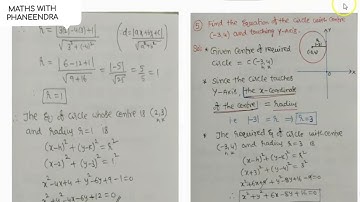 MATHS WITH
PHANEENDRA
r = |3(2)-4(3)+1| / √(3²+(-4)²)
(d = |ax+by+c| / √(a²+b²))
r = |6-12+1| / √(9+16) = |-5| / √25 = 5/5 = 1
r = 1
The Eq of circle whose centre is (2,3)
and radius r = 1 is
(x-h)²+(y-k)² = r²
(x-2)²+(y-3)² = 1²
x²-4x+4+y²-6y+9-1=0
x²+y²-4x-6y+12=0
⑤ Find the Equation of the Circle with centre
(-3,4) and touching Y-axis.
Sol:- * Given centre of required
circle = C (-3,4)
* Since the circle touches
Y-Axis, the x-coordinate
of the centre = radius
i.e |-3| = r ⇒ r=3
* The required Eq of circle with centre
(-3,4) and radius r = 3 is
(x-h)²+(y-k)² = r²
(x+3)²+(y-4)² = 3²
x²+6x+9+y²-8y+16-9=0
x²+y²+6x-8y+16=0